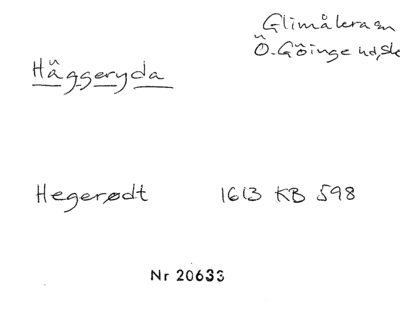 Glimåkra sn
Ö. Göinge hd, Sk
Häggeryda
Hegerødt 1613 KB 598
Nr 20633